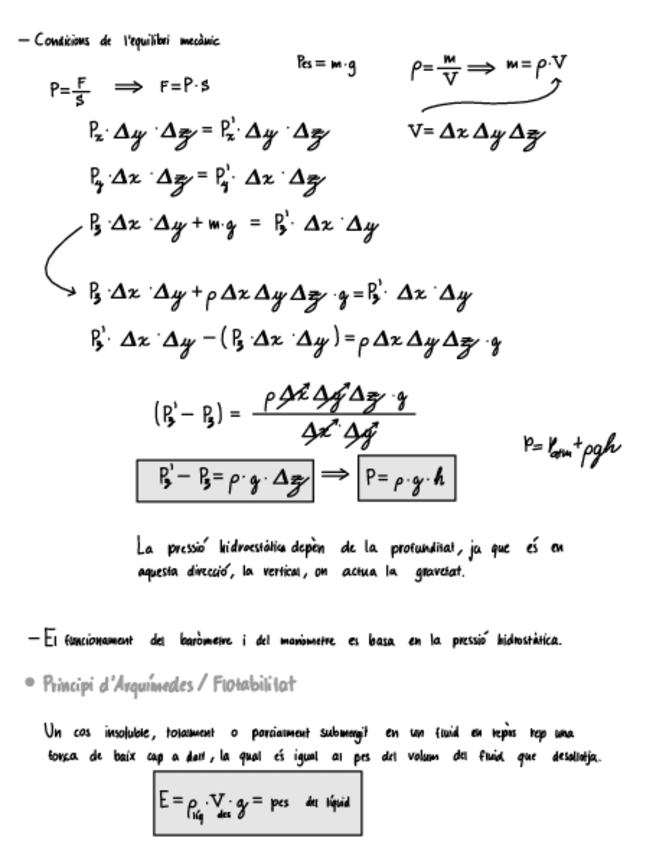 - Condicions de l'equilibri mecànic
P=F/S ⟹ F=P·S
Pes=m·g
ρ=m/V ⟹ m=ρ·V
Px·Δy·Δz=Px'·Δy·Δz
V=ΔxΔyΔz
Py·Δx·Δz=Py'·Δx·Δz
Pz·Δx·Δy+m·g = Pz'·Δx·Δy
Pz·Δx·Δy+ρΔxΔyΔz·g=Pz'·Δx·Δy
Pz'·Δx·Δy-(Pz·Δx·Δy)=ρΔxΔyΔz·g
(Pz'-Pz) = ρΔxΔyΔz·g / Δx·Δy
P=Patm+ρgh
Pz'-Pz=ρ·g·Δz ⟹ P=ρ·g·h
La pressió hidroestàtica depèn de la profunditat, ja que és en
aquesta direcció, la vertical, on actua la gravetat.
- El funcionament del baròmetre i del manòmetre es basa en la pressió hidrostàtica.
• Principi d'Arquímedes / Flotabilitat
Un cos insoluble, totalment o parcialment submergit en un fluid en repòs rep una
força de baix cap a dalt, la qual és igual al pes del volum del fluid que desallotja.
E=ρlíq·Vdes·g= pes del líquid